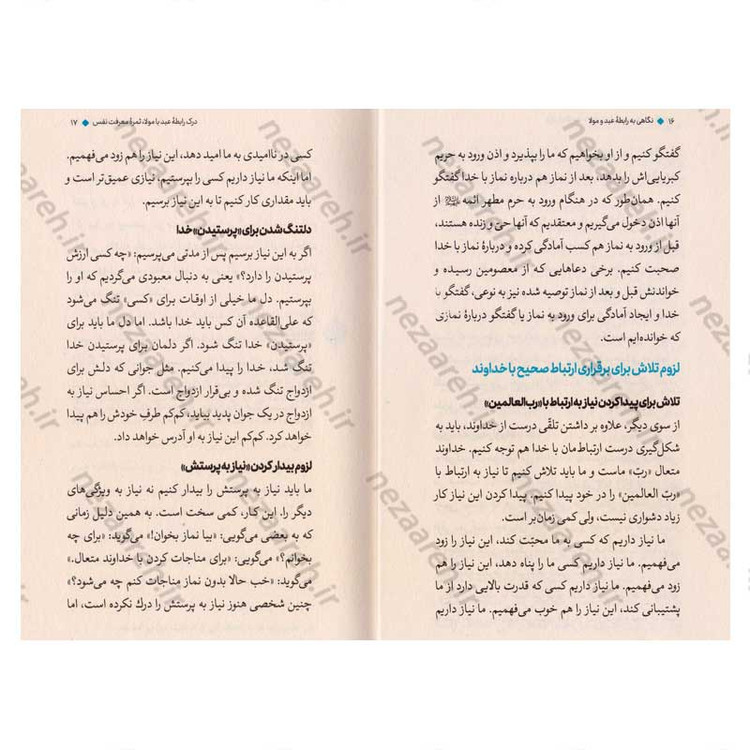 ۱۶ ◆ نگاهی به رابطهٔ عبد و مولا
گفتگو کنیم و از او بخواهیم که ما را بپذیرد و اذن ورود به حریم
کبریایی‌اش را بدهد، بعد از نماز هم درباره نماز با خدا گفتگو
کنیم. همان‌طور که در هنگام ورود به حرم مطهر ائمه از
آنها اذن دخول می‌گیریم و معتقدیم که آنها حیّ و زنده هستند،
قبل از ورود به نماز هم کسب آمادگی کرده و دربارهٔ نماز با خدا
صحبت کنیم. برخی دعاهایی که از معصومین رسیده و
خواندنش قبل و بعد از نماز توصیه شده نیز به نوعی، گفتگو با
خدا و ایجاد آمادگی برای ورود به نماز یا گفتگو دربارهٔ نمازی
که خوانده‌ایم است.
لزوم تلاش برای برقراری ارتباط صحیح با خداوند
تلاش برای پیدا کردن نیاز به ارتباط با «رب‌العالمین»
از سوی دیگر، علاوه بر داشتن تلقّی درست از خداوند، باید به
شکل‌گیری درست ارتباط‌مان با خدا هم توجه کنیم. خداوند
متعال «ربّ» ماست و ما باید تلاش کنیم تا نیاز به ارتباط با
«ربّ العالمین» را در خود پیدا کنیم. پیدا کردن این نیاز کار
زیاد دشواری نیست، ولی کمی زمان‌بر است.
ما نیاز داریم که کسی به ما محبّت کند، این نیاز را زود
می‌فهمیم. ما نیاز داریم کسی ما را پناه دهد، این نیاز را هم
زود می‌فهمیم. ما نیاز داریم کسی که قدرت بالایی دارد از ما
پشتیبانی کند، این نیاز را هم خوب می‌فهمیم. ما نیاز داریم
درک رابطهٔ عبد با مولا، ثمرهٔ معرفت نفس ◆ ۱۷
کسی در ناامیدی به ما امید دهد، این نیاز را هم زود می‌فهمیم.
اما اینکه ما نیاز داریم کسی را بپرستیم. نیازی عمیق‌تر است و
باید مقداری کار کنیم تا به این نیاز برسیم.
دلتنگ شدن برای «پرستیدن» خدا
اگر به این نیاز برسیم پس از مدتی می‌پرسیم: «چه کسی ارزش
پرستیدن را دارد؟» یعنی به دنبال معبودی می‌گردیم که او را
بپرستیم. دل ما خیلی از اوقات برای «کسی» تنگ می‌شود
که علی‌القاعده آن کس باید خدا باشد. اما دل ما باید برای
«پرستیدن» خدا تنگ شود. اگر دلمان برای پرستیدن خدا
تنگ شد، خدا را پیدا می‌کنیم. مثل جوانی که دلش برای
ازدواج تنگ شده و بی‌قرار ازدواج است. اگر احساس نیاز به
ازدواج در یک جوان پدید بیاید، کم‌کم طرفِ خودش را هم پیدا
خواهد کرد. کم‌کم این نیاز به او آدرس خواهد داد.
لزوم بیدار کردن «نیاز به پرستش»
ما باید نیاز به پرستش را بیدار کنیم نه نیاز به ویژگی‌های
دیگر را. این کار، کمی سخت است. به همین دلیل زمانی
که به بعضی می‌گویی: «بیا نماز بخوان!» می‌گوید: «برای چه
بخوانم؟» می‌گویی: «برای مناجات کردن با خداوند متعال.»
می‌گوید: «خب حالا بدون نماز مناجات کنم چه می‌شود؟»
چنین شخصی هنوز نیاز به پرستش را درك نکرده است، اما
nezaareh.ir